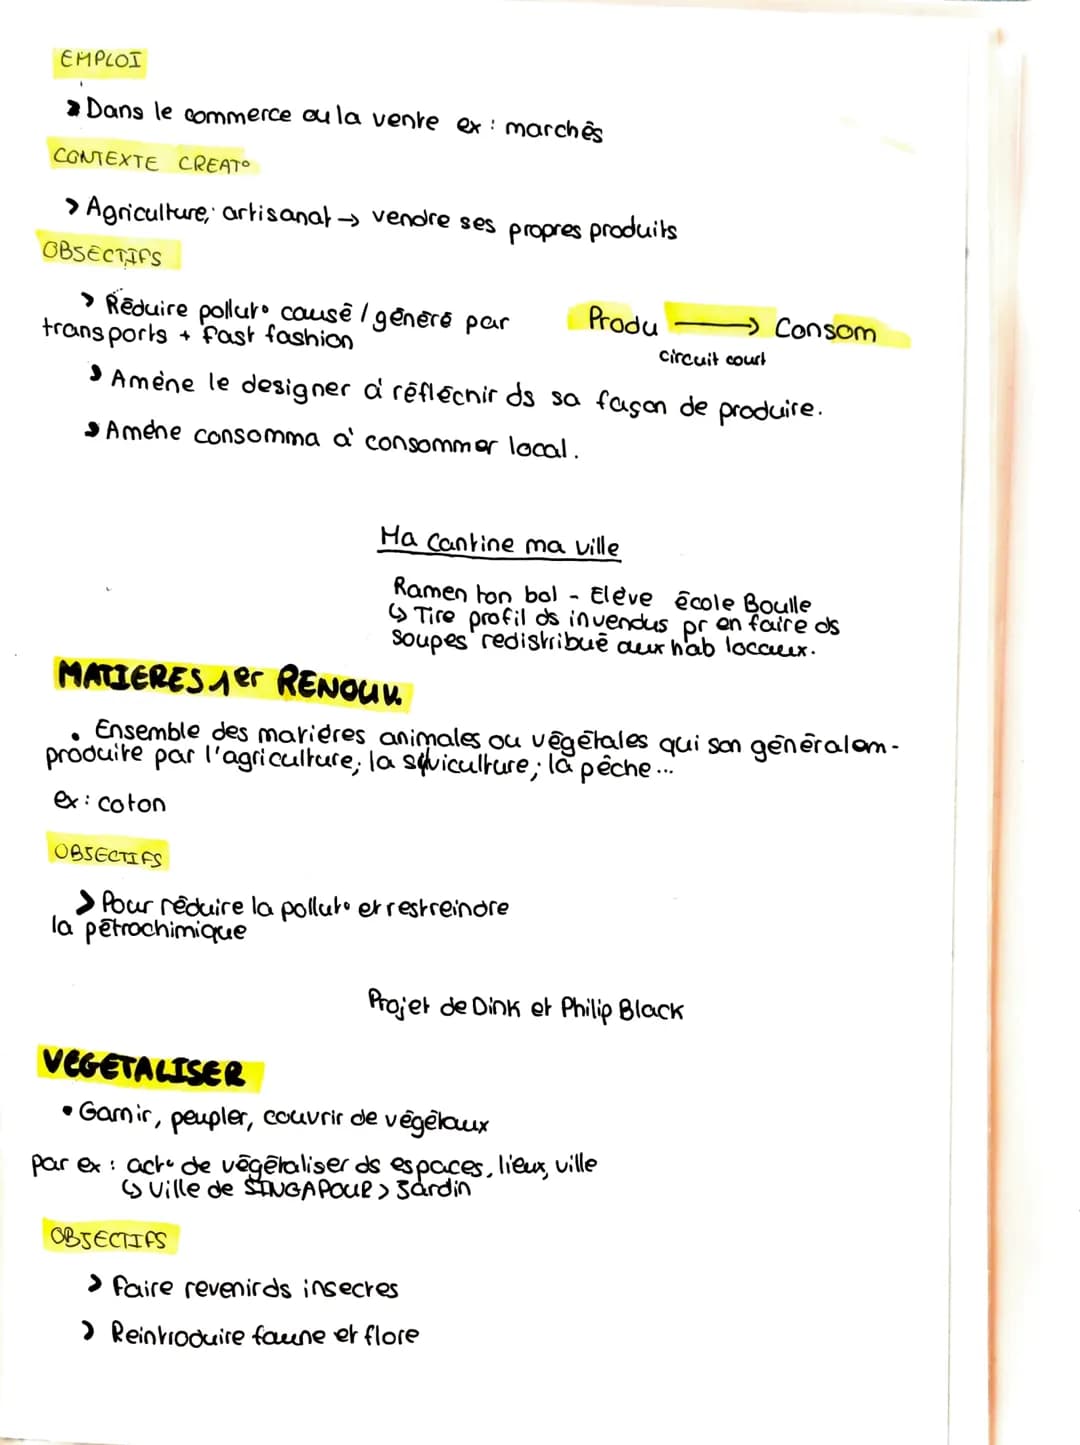 EMPLOI
> Dans le commerce ou la vente ex : marchés
CONTEXTE CREAT°
> Agriculture, artisanat → vendre ses propres produits
OBJECTIFS
> Réduire pollut° causé / généré par
transports + fast fashion
Produ → Consom
circuit court
> Amène le designer à réfléchir ds sa façon de produire.
> Amène consomma à consommer local.
Ma Cantine ma ville
Ramen ton bol - Elève école Boulle
↳ Tire profil ds invendus pr en faire ds
soupes redistribué aux hab locaux.
MATIERES 1er RENOUV.
• Ensemble des matières animales ou végétales qui son généralem-
produite par l'agriculture, la sylviculture, la pêche ...
ex : coton
OBJECTIFS
> Pour réduire la pollut° et restreindre
la pétrochimique
Projet de Dink et Philip Black
VEGETALISER
• Garnir, peupler, couvrir de végétaux
par ex : act° de végétaliser ds espaces, lieux, ville
↳ Ville de SINGAPOUR > Jardin
OBJECTIFS
> faire revenir ds insectes
> Reintroduire faune et flore